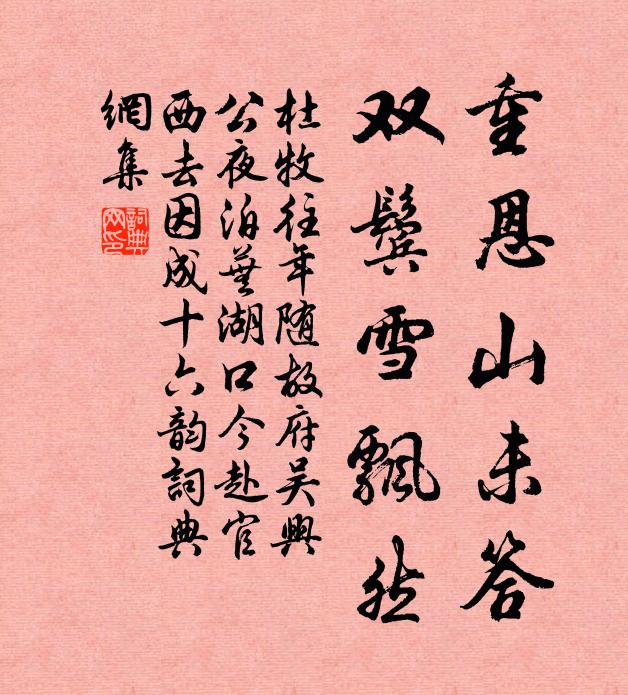 重恩山未答
双鬓雪飄然
杜牧往年随故府吴興
公夜泊蕪湖口今赴官
西去因成十六韵詞典
網集
詞典網印